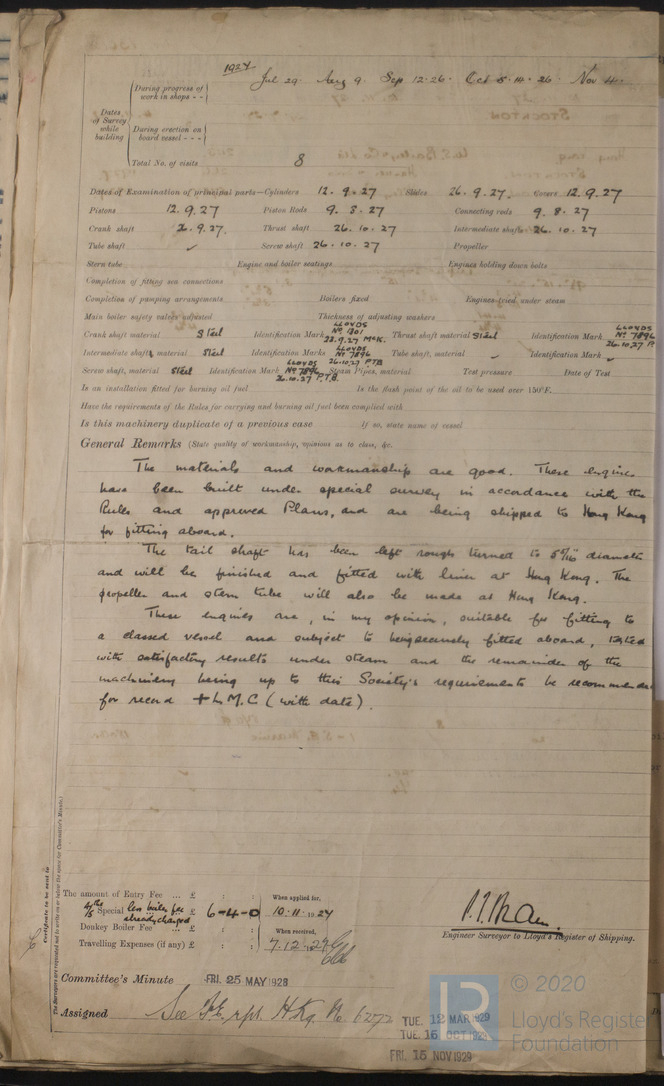 1927 Jul 29. Aug 9. Sep 12.26. Oct 5.14.26. Nov 4.
Dates of Survey while building
During progress of work in shops - -
During erection on board vessel - - -
Total No. of visits 8
Dates of Examination of principal parts—Cylinders 12.9.27 Slides 26.9.27. Covers 12.9.27
Pistons 12.9.27 Piston Rods 9.8.27 Connecting rods 9.8.27
Crank shaft 26.9.27. Thrust shaft 26.10.27 Intermediate shafts 26.10.27
Tube shaft ✓ Screw shaft 26.10.27 Propeller
Stern tube Engine and boiler seatings Engines holding down bolts
Completion of fitting sea connections
Completion of pumping arrangements Boilers fixed Engines tried under steam
Main boiler safety valves adjusted Thickness of adjusting washers
Crank shaft material Steel Identification Mark LLOYDS No 1801 28.9.27 McK. Thrust shaft material Steel Identification Mark LLOYDS No 7896 26.10.27 P.
Intermediate shafts, material Steel Identification Marks LLOYDS No 7896 26.10.27 P.T.B. Tube shaft, material ✓ Identification Mark ✓
Screw shaft, material Steel Identification Mark LLOYDS No 7896 26.10.27 P.T.B. Steam Pipes, material Test pressure Date of Test
Is an installation fitted for burning oil fuel Is the flash point of the oil to be used over 150°F.
Have the requirements of the Rules for carrying and burning oil fuel been complied with
Is this machinery duplicate of a previous case If so, state name of vessel
General Remarks (State quality of workmanship, opinions as to class, &c.
The materials and workmanship are good. These engines
have been built under special survey in accordance with the
Rules and approved Plans, and are being shipped to Hong Kong
for fitting aboard.
The tail shaft has been left rough turned to diameter
and will be finished and fitted with liner at Hong Kong. The
propeller and stern tube will also be made at Hong Kong.
These engines are, in my opinion, suitable for fitting to
a classed vessel and subject to being securely fitted aboard, tested
with satisfactory results under steam and the remainder of the
machinery being up to this Society's requirements be recommended
for record + L.M.C (with date).
Certificate to be sent to
The Surveyors are requested not to write on or below the space for Committee's Minute.
The amount of Entry Fee ... £ : : When applied for,
4/5ths Special less boiler fee already charged £ 6-4-0 10.11.1927
Donkey Boiler Fee ... £ : : When received,
Travelling Expenses (if any) £ : : 7.12.1927
Engineer Surveyor to Lloyd's Register of Shipping.
Committee's Minute FRI. 25 MAY 1928
Assigned See F.E. rpt. H.Kg. No 6272
TUE. 12 MAR 1929
TUE. 15 OCT 1929
FRI. 15 NOV 1929
LR © 2020 Lloyd's Register Foundation